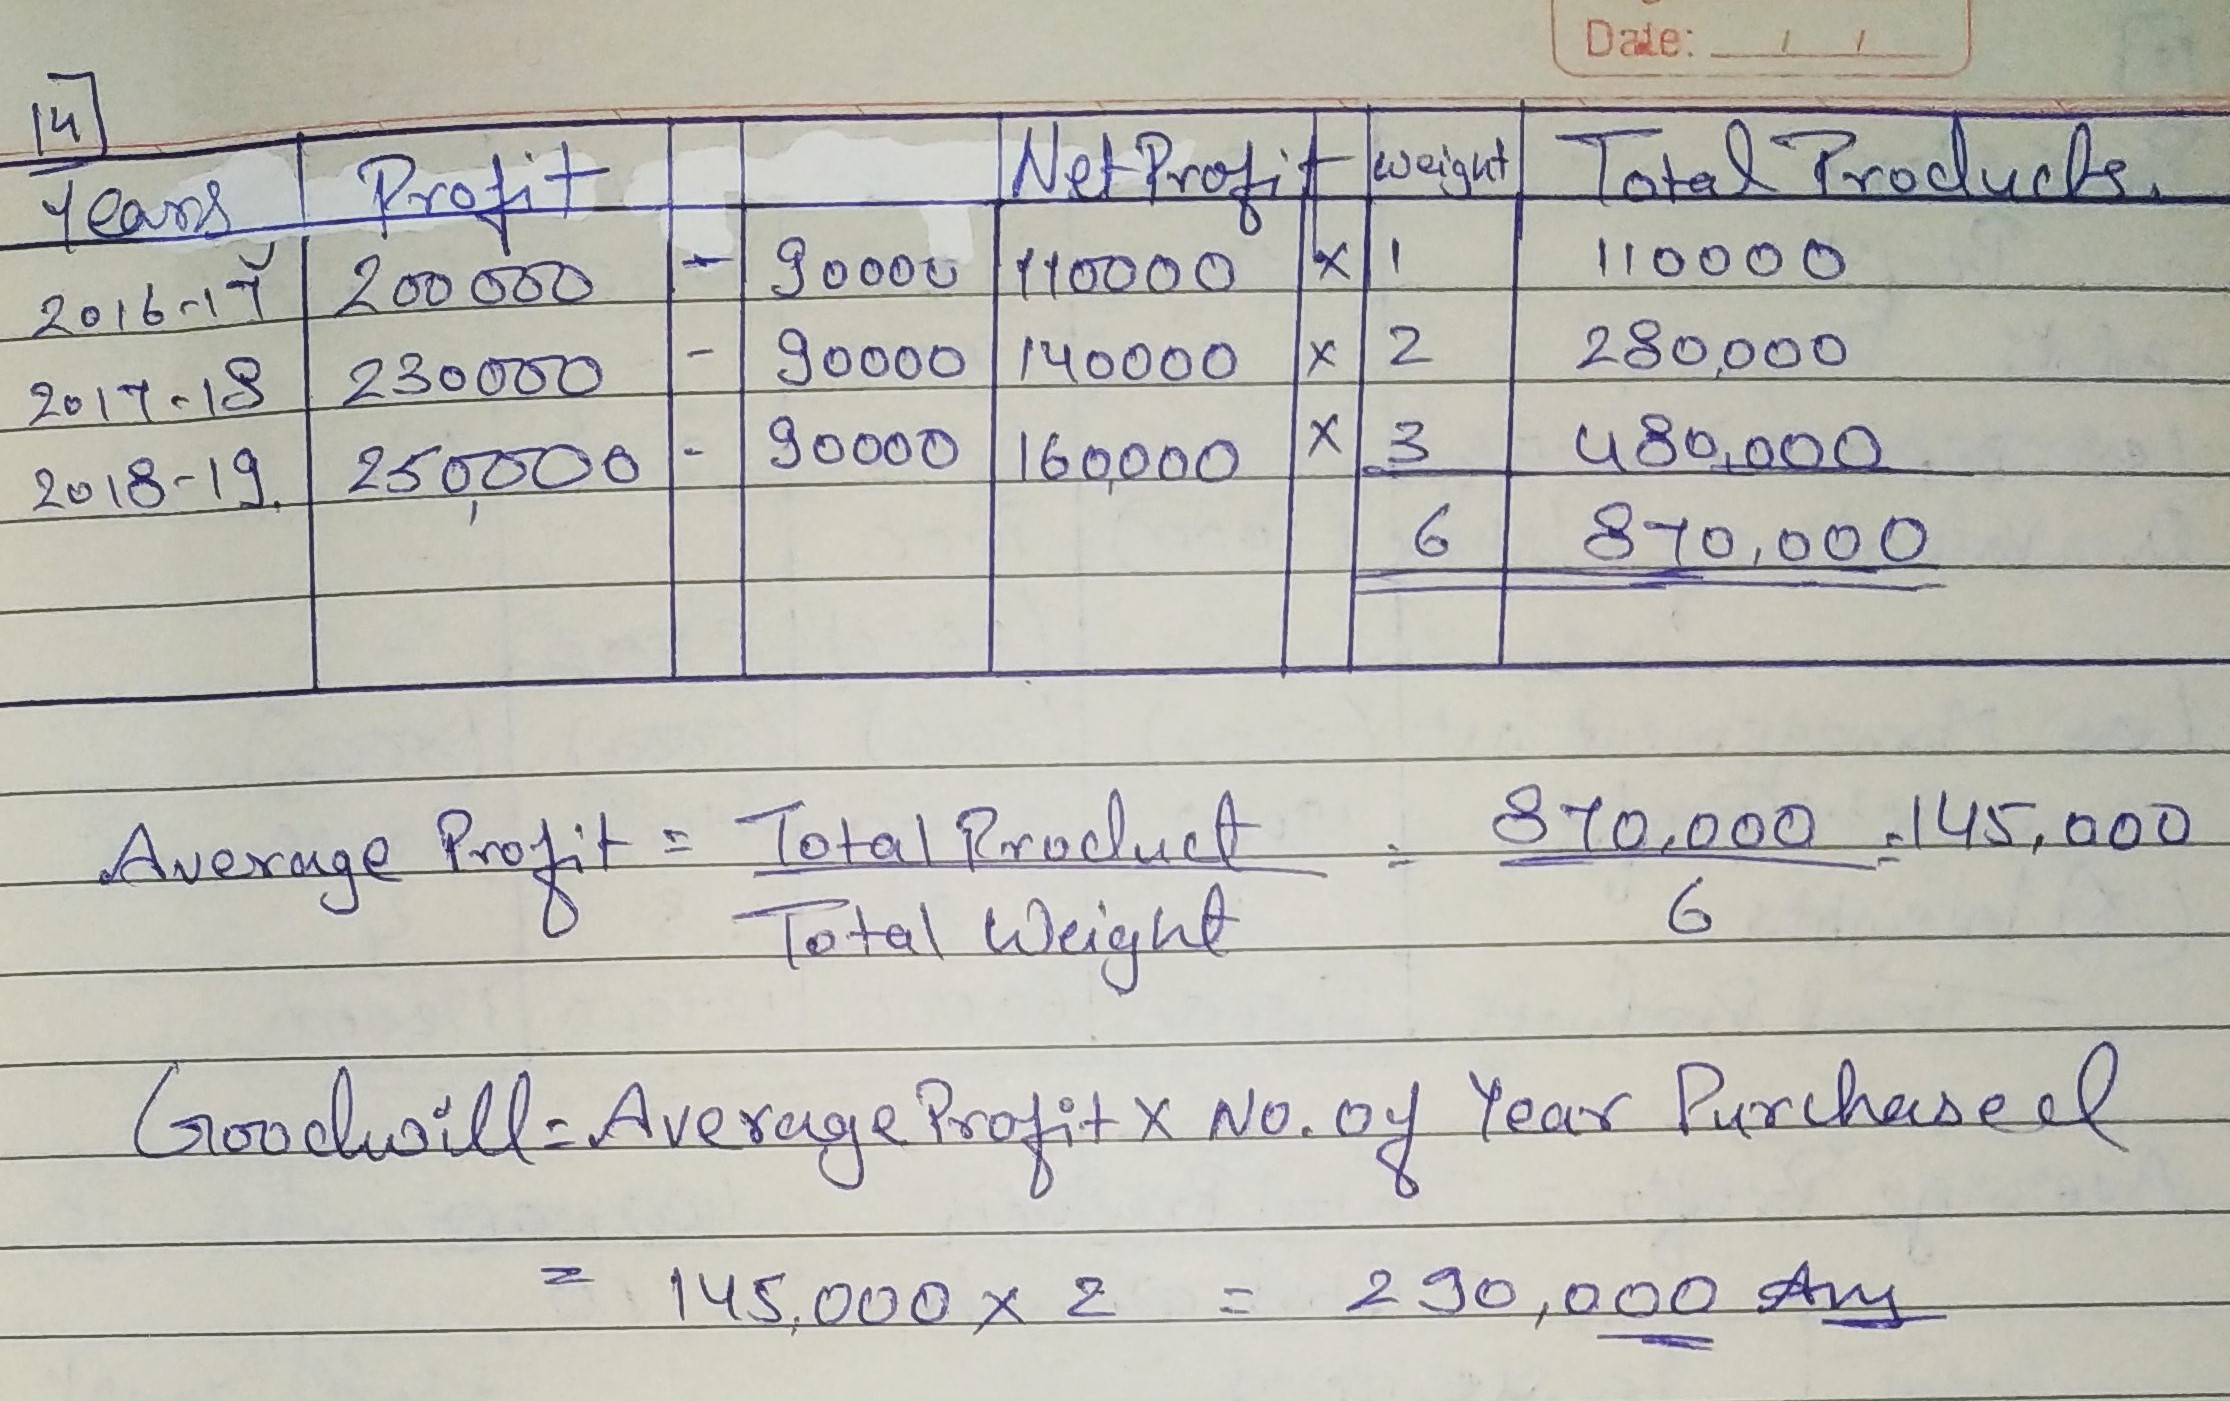 Date: / /
14
Years Profit Net Profit weight Total Products.
2016-17 200000 - 90000 110000 x 1 110000
2017-18 230000 - 90000 140000 x 2 280,000
2018-19. 250,000 - 90000 160,000 x 3 480,000
6 870,000
Average Profit = Total Product = 870,000 = 145,000
Total Weight 6
Goodwill = Average Profit x No. of Year Purchased
= 145,000 x 2 = 290,000 Ans